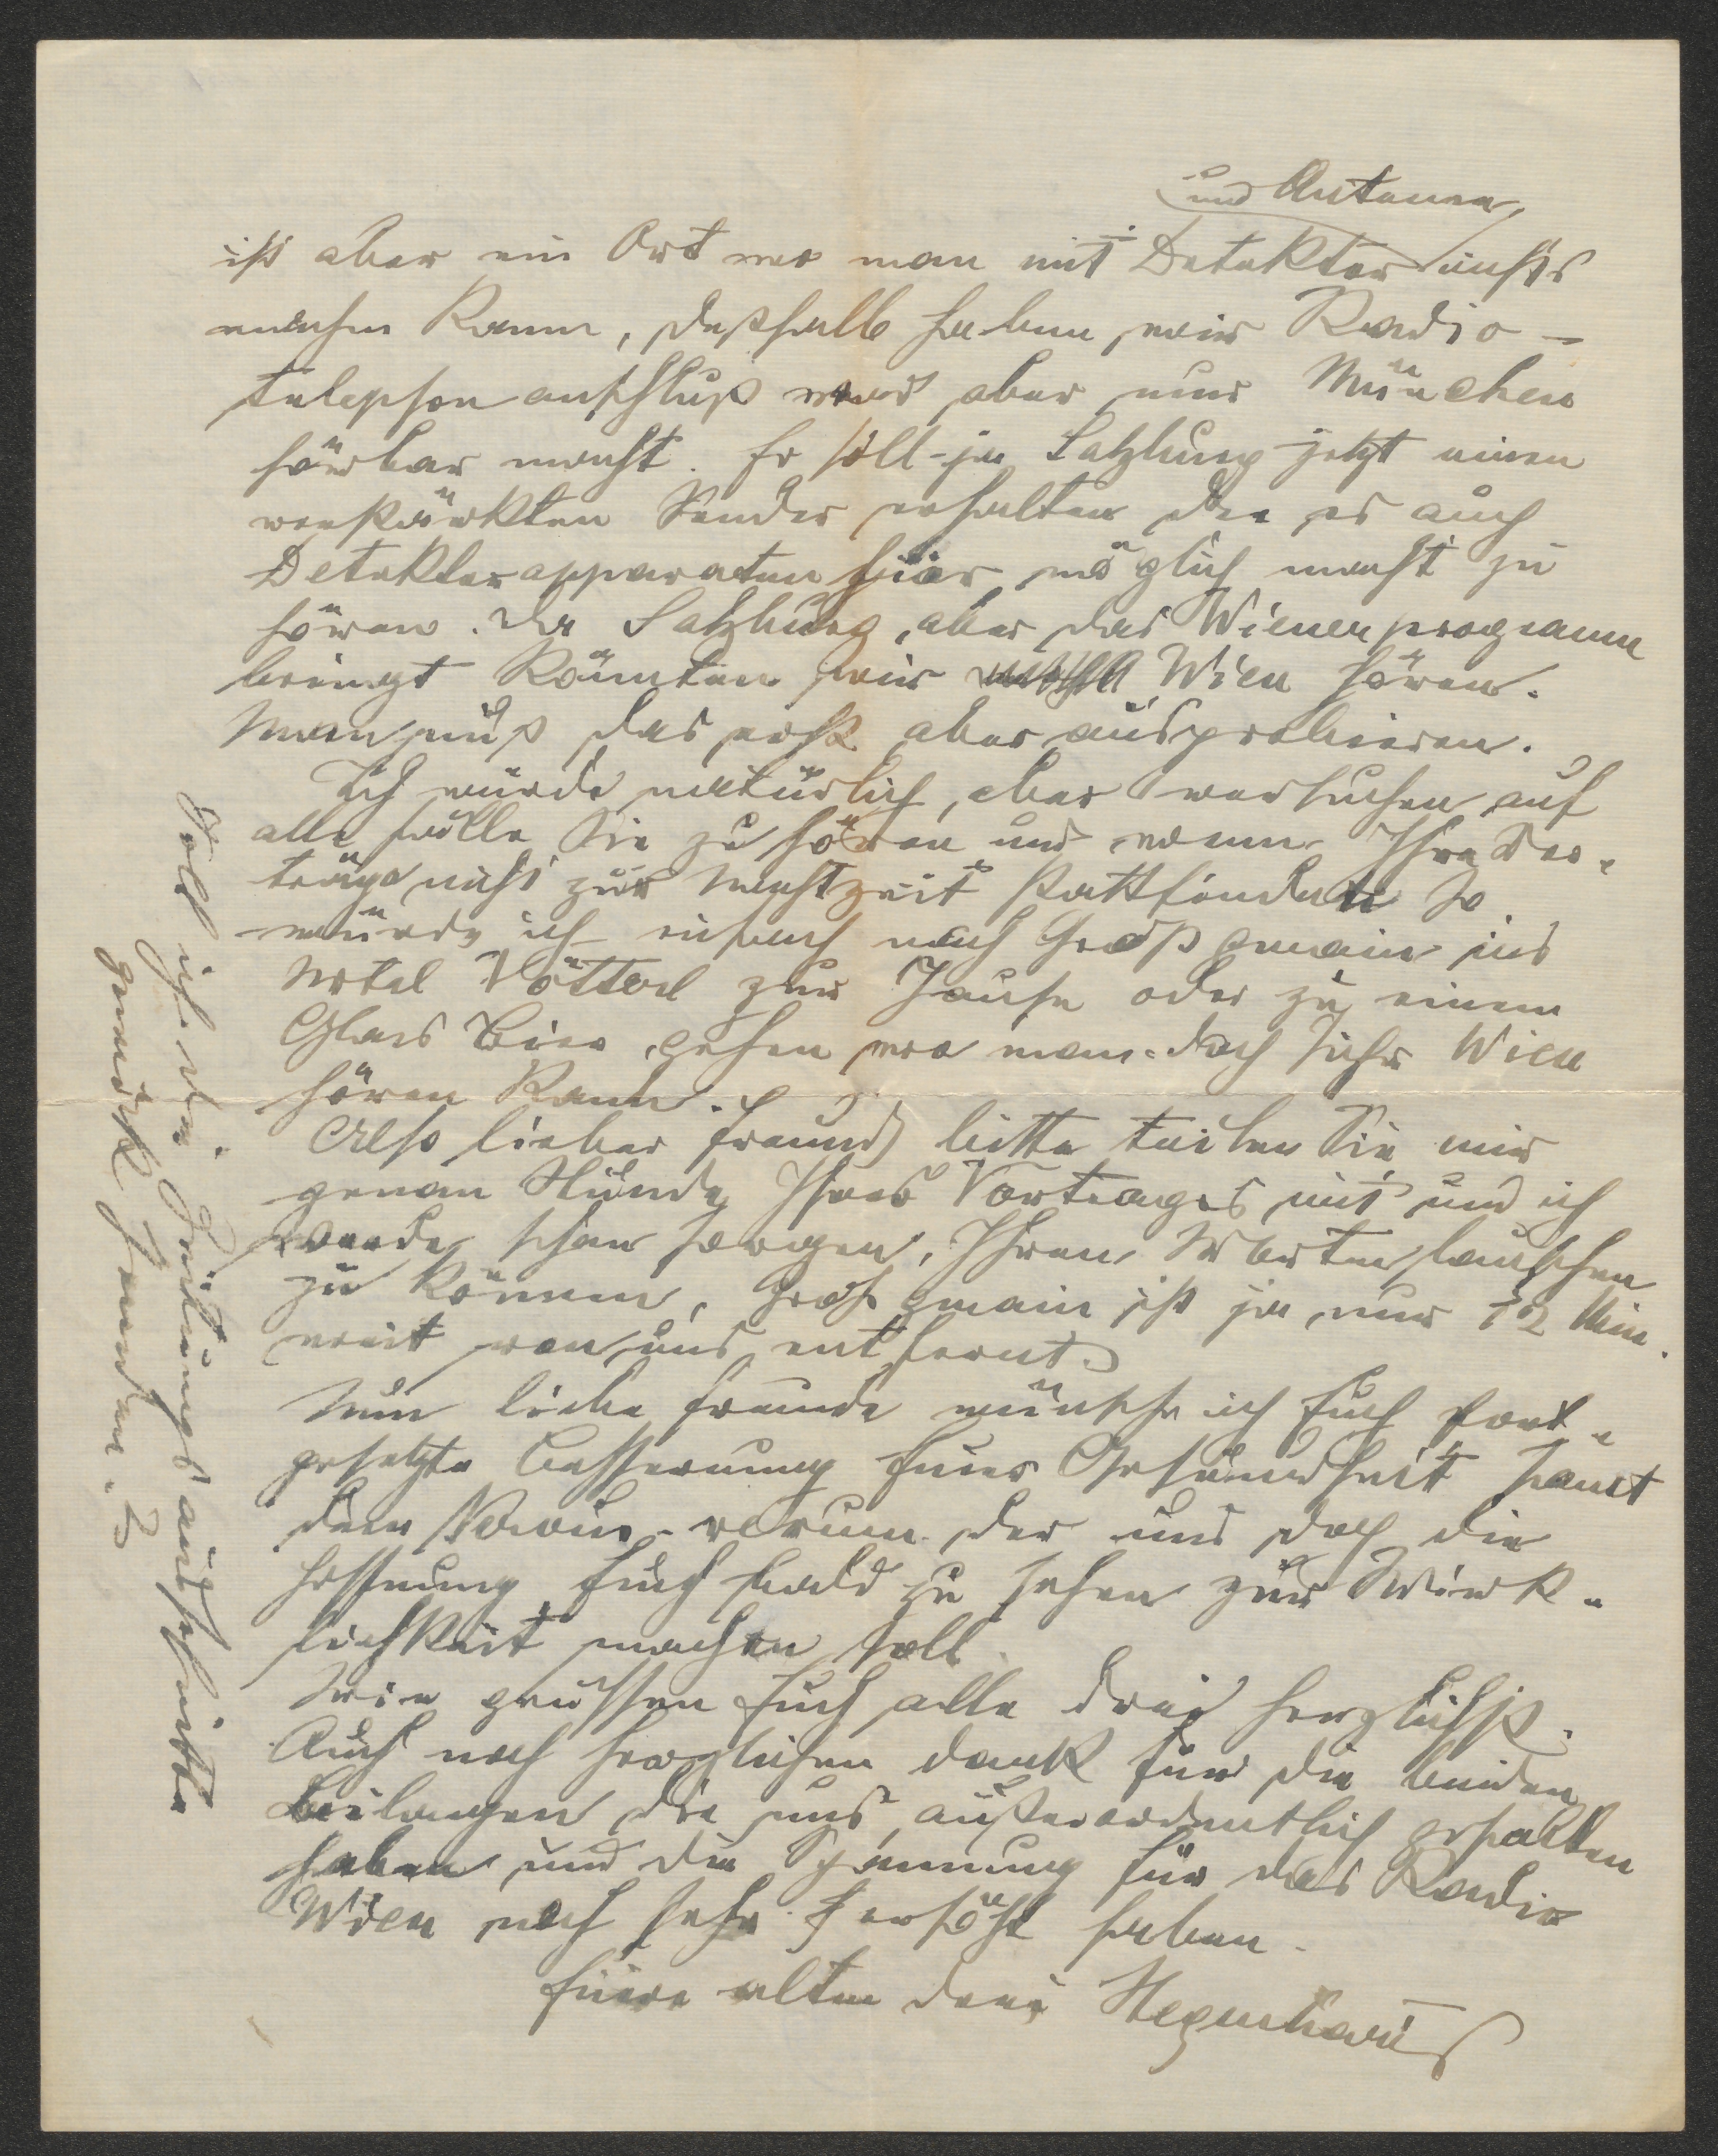 und Antenne
ist aber ein Ort wo man mit Detektor nichts
machen kann, deßhalb haben wir Radio-
telephonanschluß was aber nur München
hörbar macht. Es soll ja Salzburg jetzt einen
verstärkten Sender erhalten der es auch
Detektorapparaten hier möglich macht zu
hören. Da Salzburg aber das Wienerprogramm
bringt könnten wir Wien hören.
Man muß das erst aber ausprobieren.
Ich würde natürlich aber versuchen auf
alle Fälle Sie zu hören und wenn Ihre Vor-
träge nicht zur Nachtzeit stattfinden so
würde ich einfach nach Großgmain ins
Hotel Vötterl zur Jause oder zu einem
Glas Bier gehen wo man doch sicher Wien
hören kann.
Also lieber Freund bitte teilen Sie mir
genau Stunde Ihres Vortrages mit und ich
werde schon sorgen, Ihren Worten lauschen
zu können, Großgmain ist ja nur 12 Min.
weit von uns entfernt.
Nun liebe Freunde wünsche ich Euch fort-
gesetzte Besserung Eurer Gesundheit samt
dem der uns doch die
Hoffnung Euch bald zu sehen zur Wirk-
lichkeit machen soll.
Wir grüssen Euch alle drei herzlichst.
Auch noch herzlichen Dank für die beiden
Beilagen die uns außerordentlich gefallen
haben und die Spannung für das Radio
Wien noch sehr erhöht haben.
Eure alten drei Hegenbarts
Soll ich die Zeitungsausschnitte
zurück senden?